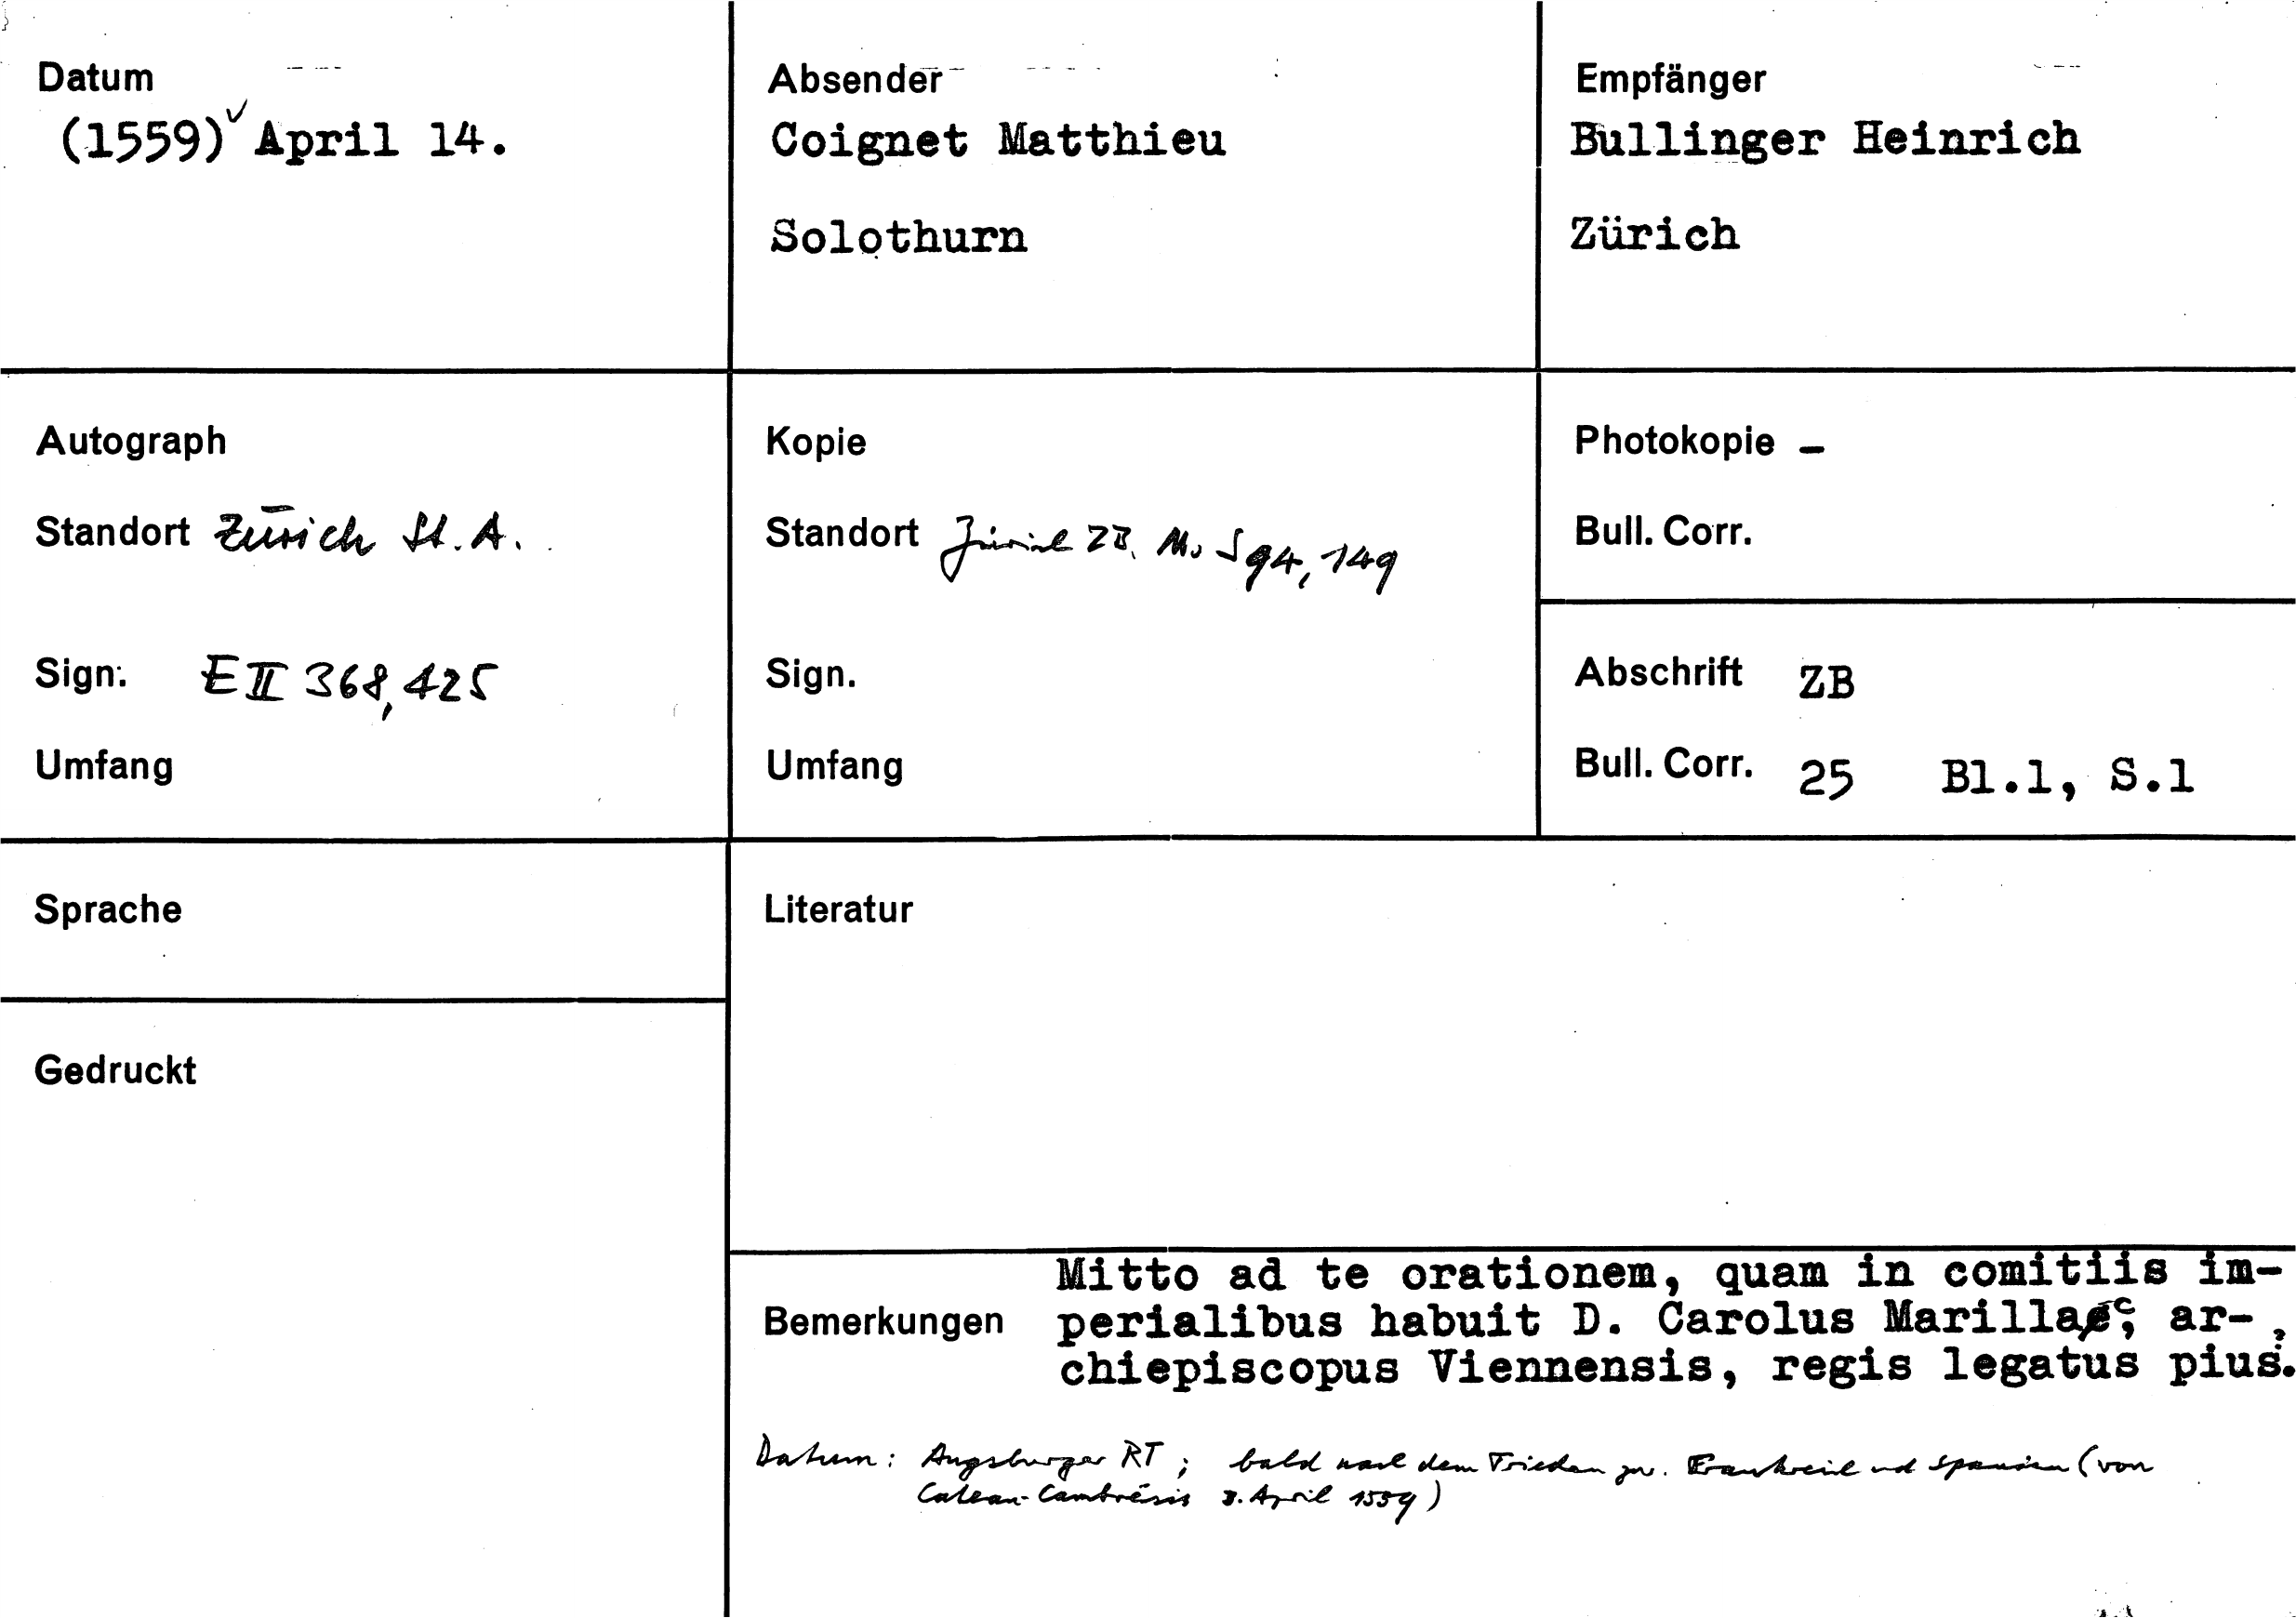 Datum
(1559) April 14.
Absender
Coignet Matthieu
Solothurn
Empfänger
Bullinger Heinrich
Zürich
Autograph
Standort Zürich St. A.
Sign: E II 368, 425
Umfang
Kopie
Standort Zürich ZB. Ms S 94, 149
Sign.
Umfang
Photokopie -
Bull. Corr.
Abschrift ZB
Bull. Corr. 25 Bl.1, S.1
Sprache
Gedruckt
Literatur
Bemerkungen
Mitto ad te orationem, quam in comitiis im-
perialibus habuit D. Carolus Marillac, ar-
chiepiscopus Viennensis, regis legatus pius.
Datum: Augsburger RT; bald nach dem Frieden zw. Frankreich und Spanien (von
Cateau-Cambrésis 3. April 1559)